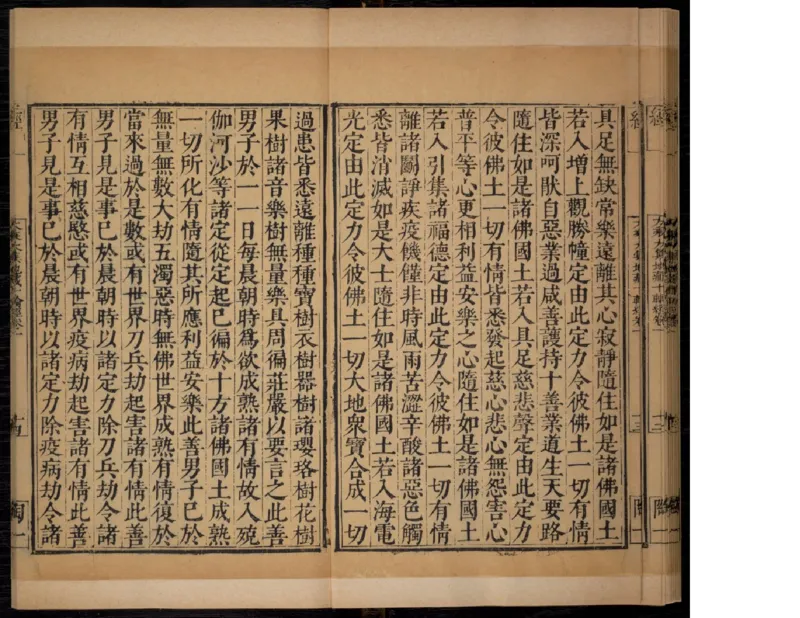 具足無缺常樂遠離其心寂靜隨住如是諸佛國土
若入增上觀勝幢定由此定力令彼佛土一切有情
皆深呵猒自惡業過咸善護持十善業道生天要路
隨住如是諸佛國土若入具足慈悲聲定由此定力
令彼佛土一切有情皆悉發起慈心悲心無怨害心
普平等心更相利益安樂之心隨住如是諸佛國土
若入引集諸福德定由此定力令彼佛土一切有情
離諸鬬諍疾疫饑饉非時風雨苦澀辛酸諸惡色觸
悉皆消滅如是大士隨住如是諸佛國土若入海電
光定由此定力令彼佛土一切大地衆寶合成一切
過患皆悉遠離種種寶樹衣樹器樹諸瓔珞樹花樹
果樹諸音樂樹無量樂具周徧莊嚴以要言之此善
男子於一一日每晨朝時爲欲成熟諸有情故入殑
伽河沙等諸定從定起已徧於十方諸佛國土成熟
一切所化有情隨其所應利益安樂此善男子已於
無量無數大劫五濁惡時無佛世界成熟有情復於
當來過於是數或有世界刀兵劫起害諸有情此善
男子見是事已於晨朝時以諸定力除刀兵劫令諸
有情互相慈愍或有世界疫病劫起害諸有情此善
男子見是事已於晨朝時以諸定力除疫病劫令諸